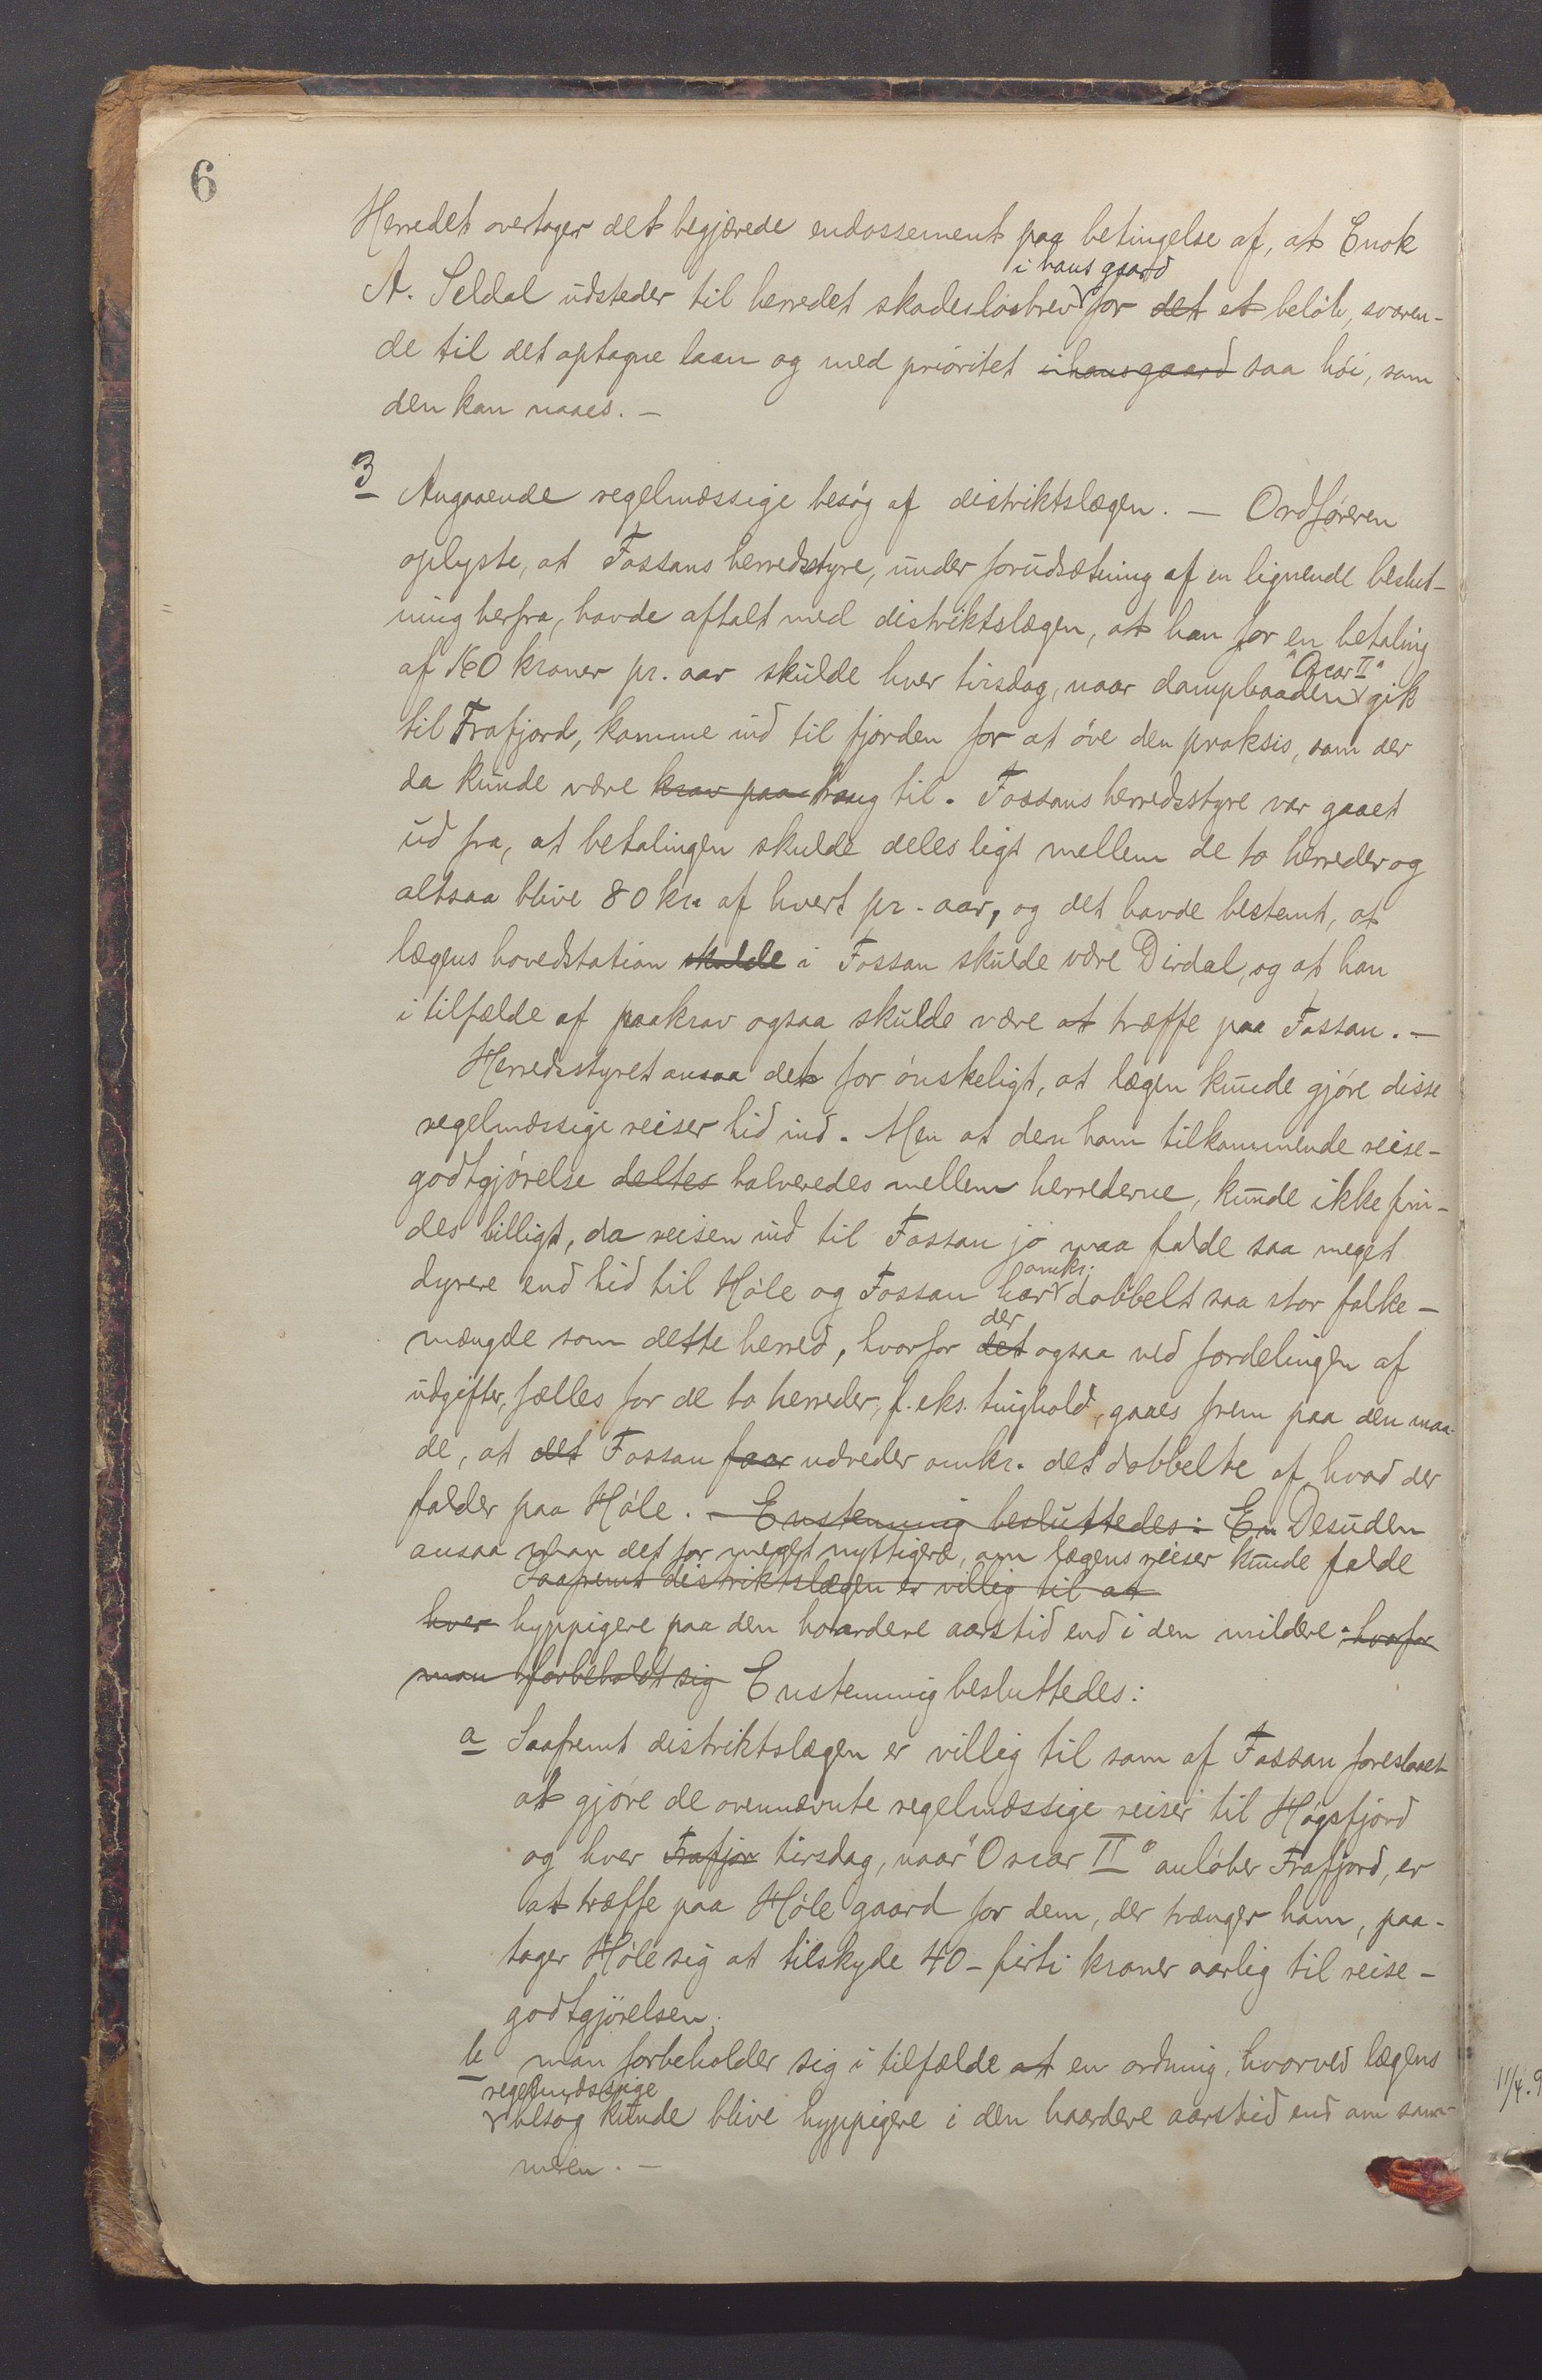 6
Herredet overtager det begjærede endossement paa betingelse af, at Enok
i hans gaard
A. Seldal udsteder til herredet skadesløsbrev for det et beløb, svaren-
de til det optagne laan og med prioritet i hans gaard saa høi, som
den kan naaes. —
3 Angaaende regelmæssige besøg af distriktslægen. — Ordføreren
oplyste, at Fossans herredsstyre, under forudsætning af en lignende beslut-
ning herfra, havde aftalt med distriktslægen, at han for en betaling
"Oscar II"
af 160 kroner pr. aar skulde hver tirsdag, naar dampbaaden gik
til Frafjord, komme ind til fjorden for at øve den praksis, som der
da kunde være krav paa trang til. Fossans herredsstyre var gaaet
ud fra, at betalingen skulde deles ligt mellem de to herreder og
altsaa blive 80 kr. af hvert pr. aar, og det havde bestemt, at
lægens hovedstation skulde i Fossan skulde være Dirdal, og at han
i tilfælde af paakrav ogsaa skulde være at træffe paa Fossan. —
Herredsstyret ansaa det for ønskeligt, at lægen kunde gjøre disse
regelmæssige reiser hid ind. Men at den ham tilkommende reise-
godtgjørelse deltes halveredes mellem herrederne, kunde ikke fin-
des billigt, da reisen ind til Fossan jo maa falde saa meget
omkr.
dyrere end hid til Høle og Fossan har dobbelt saa stor folke-
der
mængde som dette herred, hvorfor det ogsaa ved fordelingen af
udgifter, fælles for de to herreder, f. eks. tinghold, gaaes frem paa den maa-
de, at det Fossan faar udreder omkr. det dobbelte af hvad der
falder paa Høle. — Enstemmig besluttedes: En Desuden
ansaa man det for meget nyttigere, om lægens reiser kunde falde
Saafremt distriktslægen er villig til at
hver hyppigere paa den haardere aarstid end i den mildere, hvorfor
man forbeholdt sig Enstemmig besluttedes:
a Saafremt distriktslægen er villig til som af Fossan foreslaaet
at gjøre de ovennævnte regelmæssige reiser til Høgsfjord
og hver Frafjor tirsdag, naar "Oscar II" anløber Frafjord, er
at træffe paa Høle gaard for dem, der trænger ham, paa-
tager Høle sig at tilskyde 40 - firti kroner aarlig til reise-
godtgjørelsen;
b man forbeholder sig i tilfælde at en ordning, hvorved lægens
regelmæssige
besøg kunde blive hyppigere i den haardere aarstid end om som-
meren. —
11/4. 9